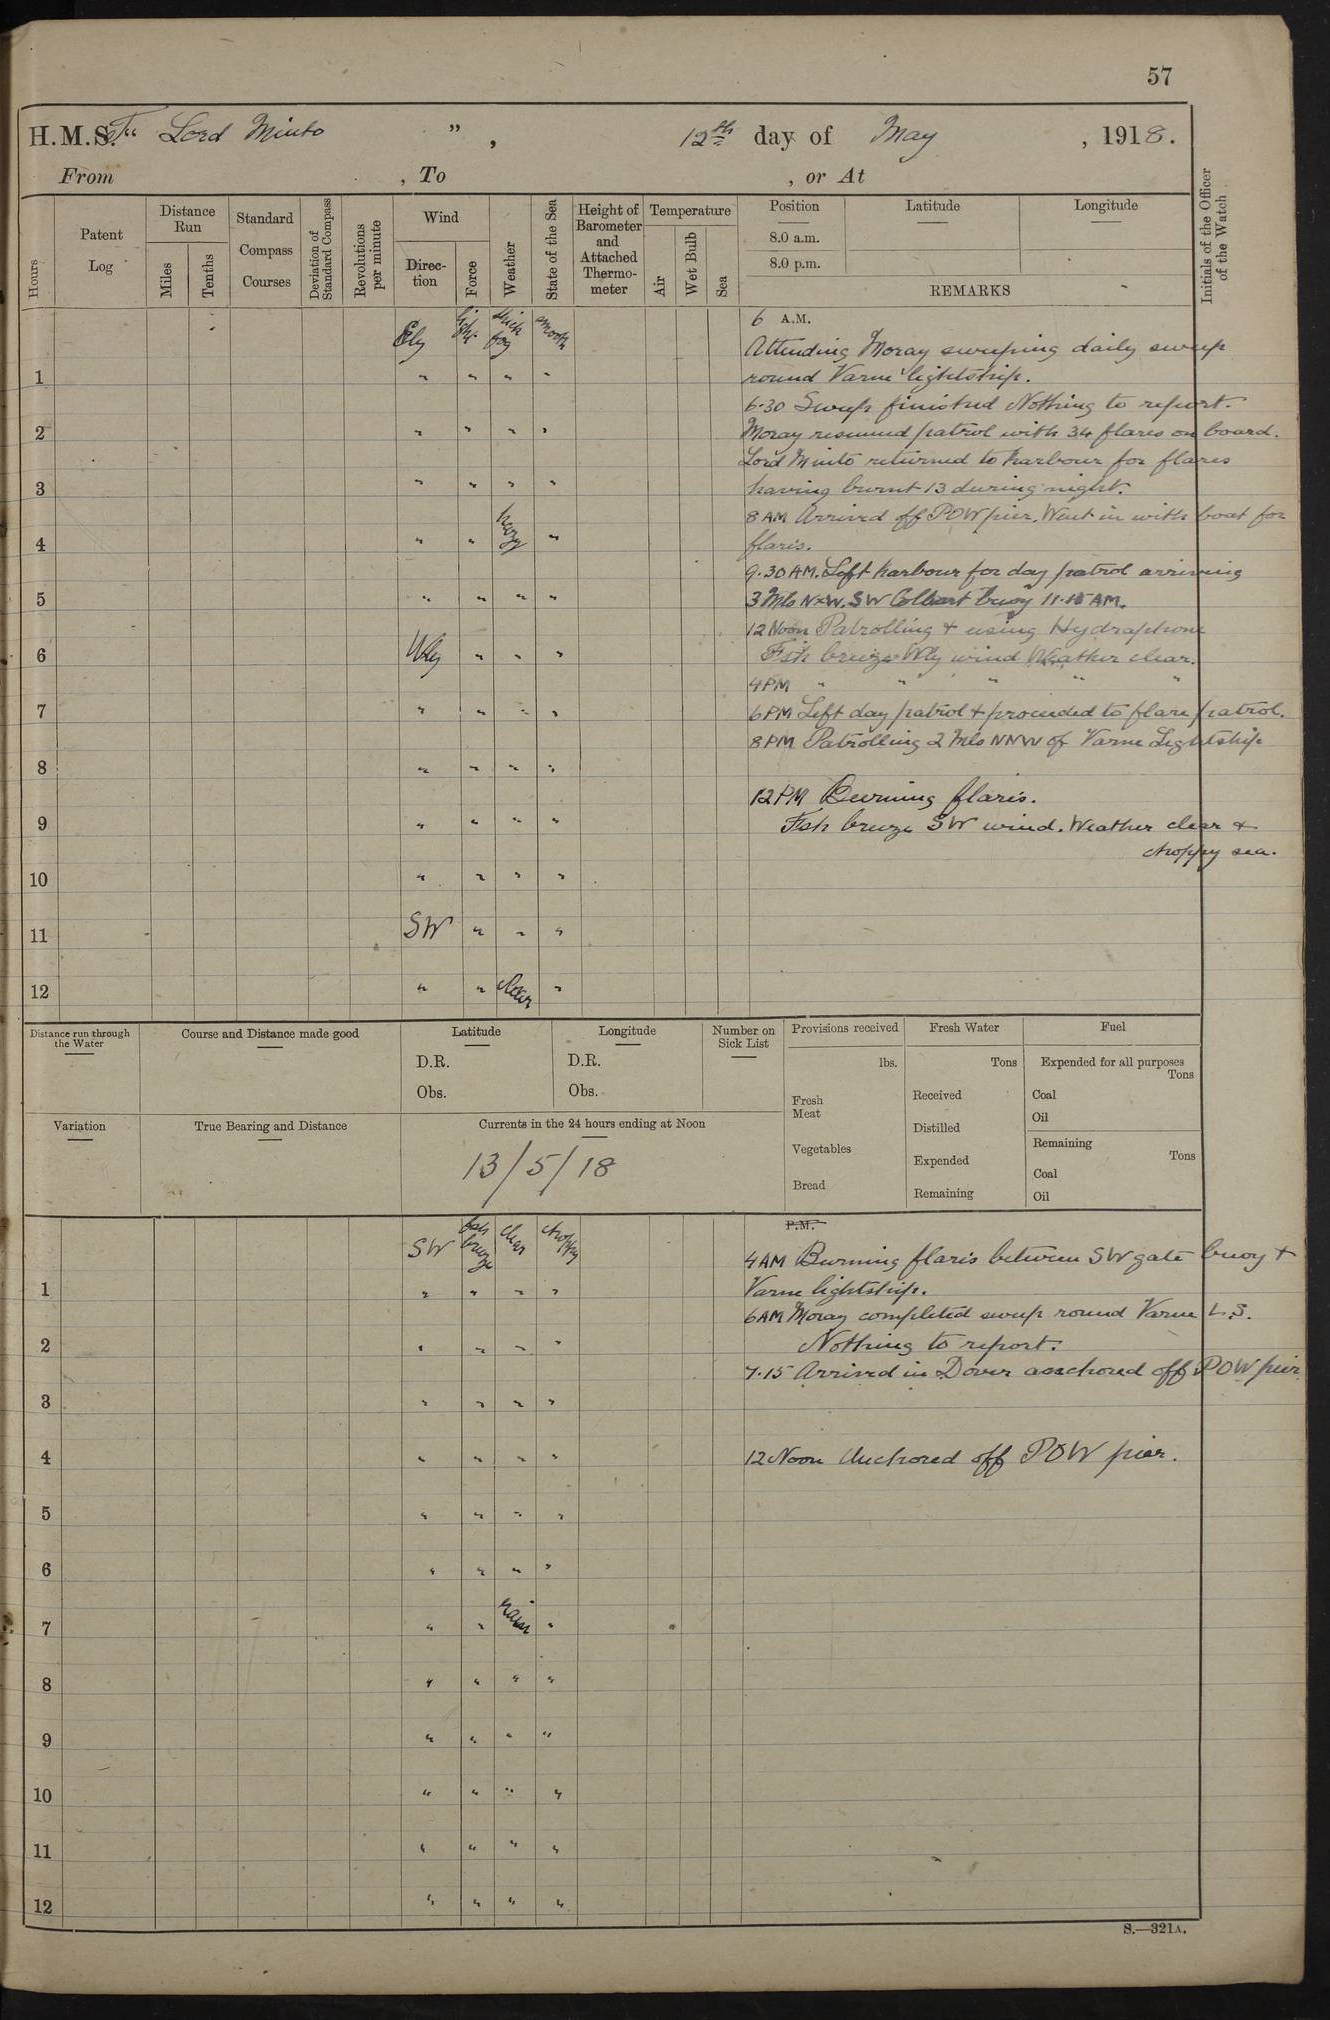 57
H.M.S.T. "Lord Minto", 12th day of May, 1918.
From , To , or At
Hours
Patent Log
Distance Run
Miles
Tenths
Standard Compass Courses
Deviation of Standard Compass
Revolutions per minute
Wind
Direction
Force
Weather
State of the Sea
Height of Barometer and Attached Thermometer
Temperature
Air
Wet Bulb
Sea
Position
8.0 a.m.
8.0 p.m.
Latitude
Longitude
REMARKS
Initials of the Officer of the Watch
Ely light thick fog smooth
6 A.M.
Attending Moray sweeping daily sweep
1 " " " "
round Varne lightship.
6.30 Sweep finished Nothing to report.
2 " " " "
Moray resumed patrol with 34 flares on board.
Lord Minto returned to harbour for flares
3 " " " "
having burnt 13 during night.
8 AM Arrived off POW pier. Went in with boat for
4 " " hazy "
flares.
9.30 AM. Left harbour for day patrol arriving
5 " " " "
3 Mls N×W. SW Colbart buoy 11.15 AM.
12 Noon Patrolling + using Hydraphone
6 Wly " " "
Fsh breeze Wly wind Weather clear.
4 PM " " " " "
7 " " " "
6 PM Left day patrol + proceeded to flare patrol.
8 PM Patrolling 2 Mls NNW of Varne Lightship
8 " " " "
12 PM Burning flares.
9 " " " "
Fsh breeze SW wind. Weather clear +
choppy sea.
10 " " " "
11 SW " " "
12 " " clear "
Distance run through the Water
Course and Distance made good
Latitude
D.R.
Obs.
Longitude
D.R.
Obs.
Number on Sick List
Provisions received
lbs.
Fresh Meat
Vegetables
Bread
Fresh Water
Tons
Received
Distilled
Expended
Remaining
Fuel
Expended for all purposes
Tons
Coal
Oil
Remaining
Tons
Coal
Oil
Variation
True Bearing and Distance
Currents in the 24 hours ending at Noon
13/5/18
P.M.
SW fsh breeze clear choppy
4 AM Burning flares between SW gate buoy +
1 " " " "
Varne lightship.
6 AM Moray completed sweep round Varne L.S.
2 " " " "
Nothing to report.
7.15 Arrived in Dover anchored off POW pier
3 " " " "
4 " " " "
12 Noon Anchored off POW pier.
5 " " " "
6 " " " "
7 " " rain "
8 " " " "
9 " " " "
10 " " " "
11 " " " "
12 " " " "
S.—321A.